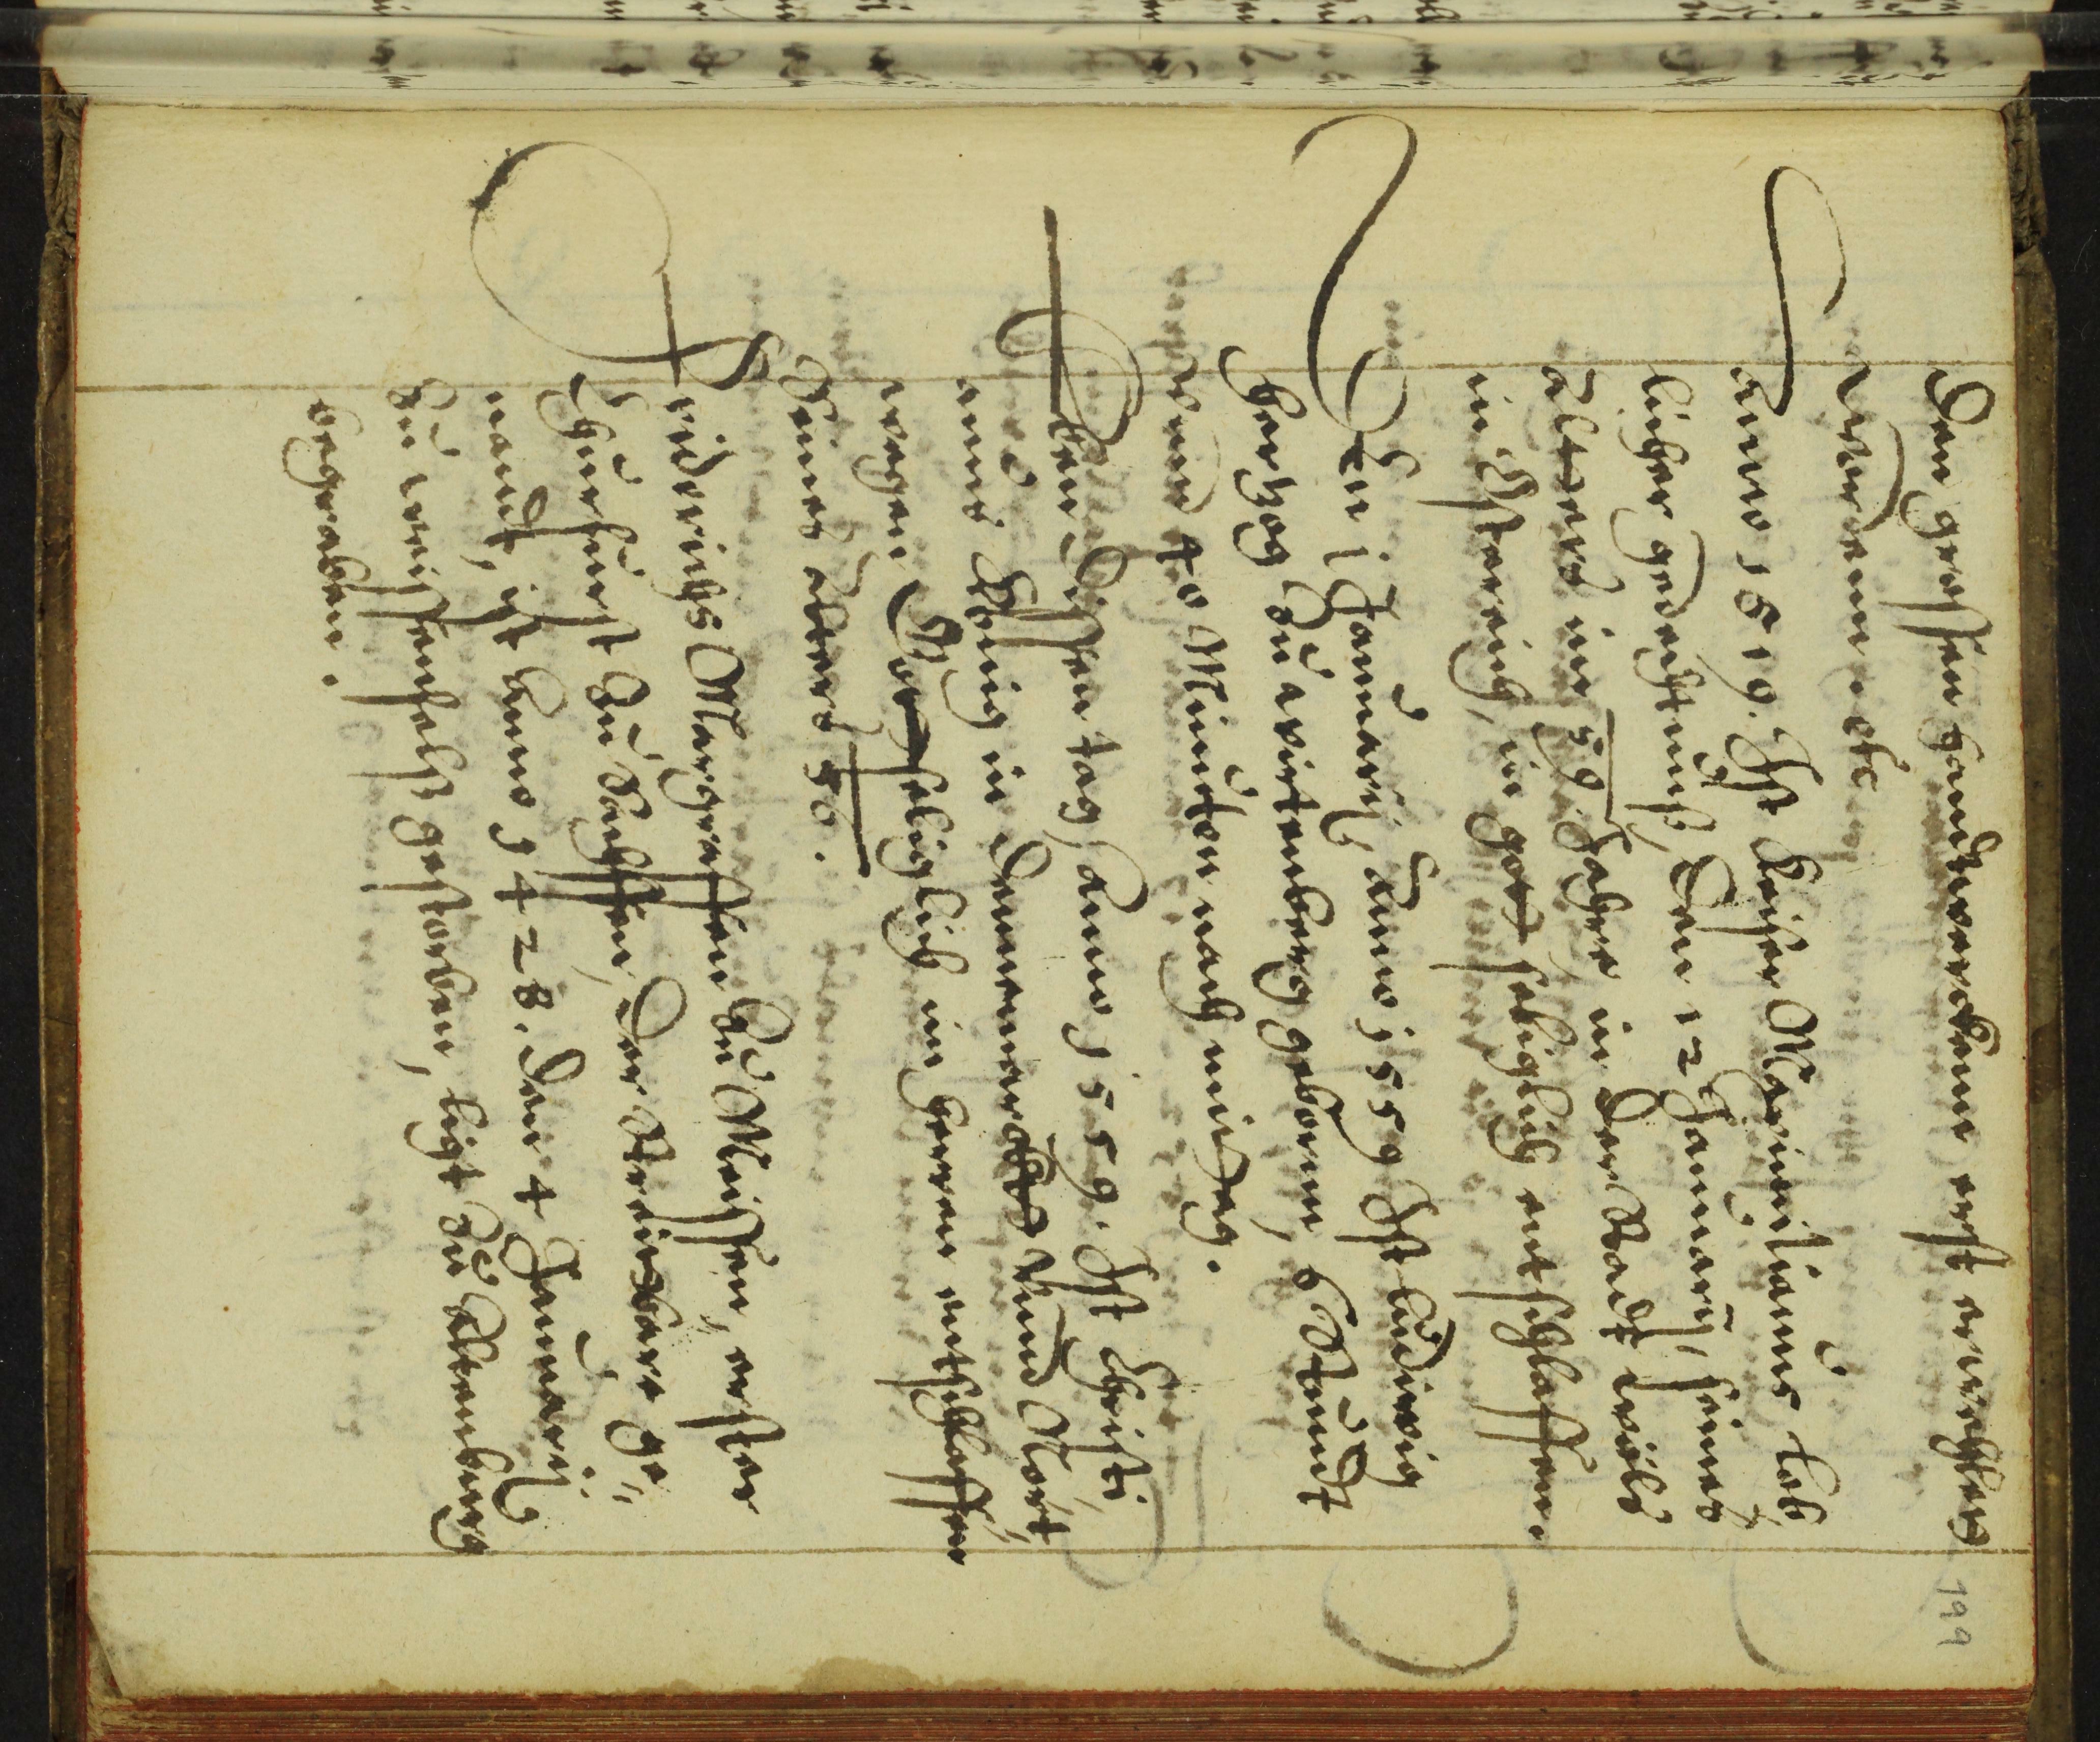 199
den grossen handtwerckern erst erweckhet
worden etc
Anno 1519. Ist Keiser Maximilianus lob,,
licher gedechtnuß, den 12 Januarij, seines
alters im 59. Jahre in der Stadt wöls
in Osterreich, in got seliglich entschlaffen.
Den 1 Januarij, Anno 1559 Ist Ludwig
hertzog Zu wirtenberg geborn, 6 Stundt
vnnd 40 Minuten nach mittag.
Eben disen tag, Anno 1559. Ist Christi,,
anus König in Dennemarckt Vnnd Nort,,
wegen Gotseliglich im herren entschlaffen
Seines alters 56.
Friderichs Marggraffen Zu Meissen, erster
Churfurst Zu Sachssen, der streitbare ge,,
nandt, ist Anno 1428. den 4 Januarij
Zu weissenfelss gestorben, ligt Zu Altenburg
begraben.